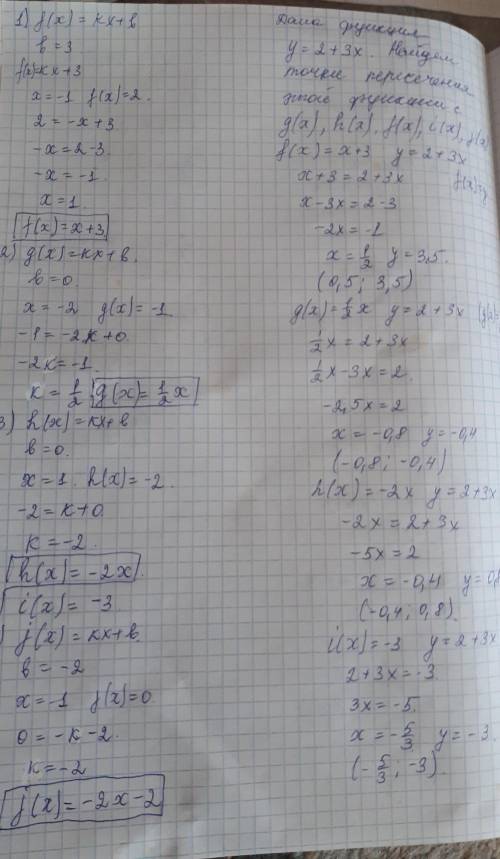 1) f(x) = kx+b
b = 3
f(x)=kx+3
x=-1 f(x)=2.
2 = -x+3
-x=2-3
-x = -1
x=1.
f(x)=x+3
2) g(x)=kx+b.
b=0.
x=-2 g(x)=-1.
-1=-2k+0
-2k=-1.
k = 1/2 g(x)=1/2x
3) h(x)=kx+b
b=0.
x=1. h(x)=-2.
-2=k+0.
k=-2.
h(x)=-2x
i(x)= -3
j(x)=kx+b.
b=-2
x=-1 j(x)=0.
0=-k-2.
k=-2
j(x)=-2x-2
Дана функция
y=2+3x. Найдем
точки пересечения
этой функции с
g(x), h(x), f(x), i(x), j(x)
f(x)=x+3 y=2+3x
x+3=2+3x f(x)=y
x-3x=2-3
-2x=-1
x=1/2 y=3,5.
(0,5; 3,5)
g(x)=1/2x y=2+3x
1/2x=2+3x
1/2x-3x=2.
-2,5x=2
x=-0,8 y=-0,4
(-0,8; -0,4)
h(x)=-2x y=2+3x
-2x=2+3x
-5x=2
x=-0,4 y=0,8
(-0,4; 0,8).
i(x)=-3 y=2+3x
2+3x=-3.
3x=-5.
x=-5/3 y=-3.
(-5/3; -3).